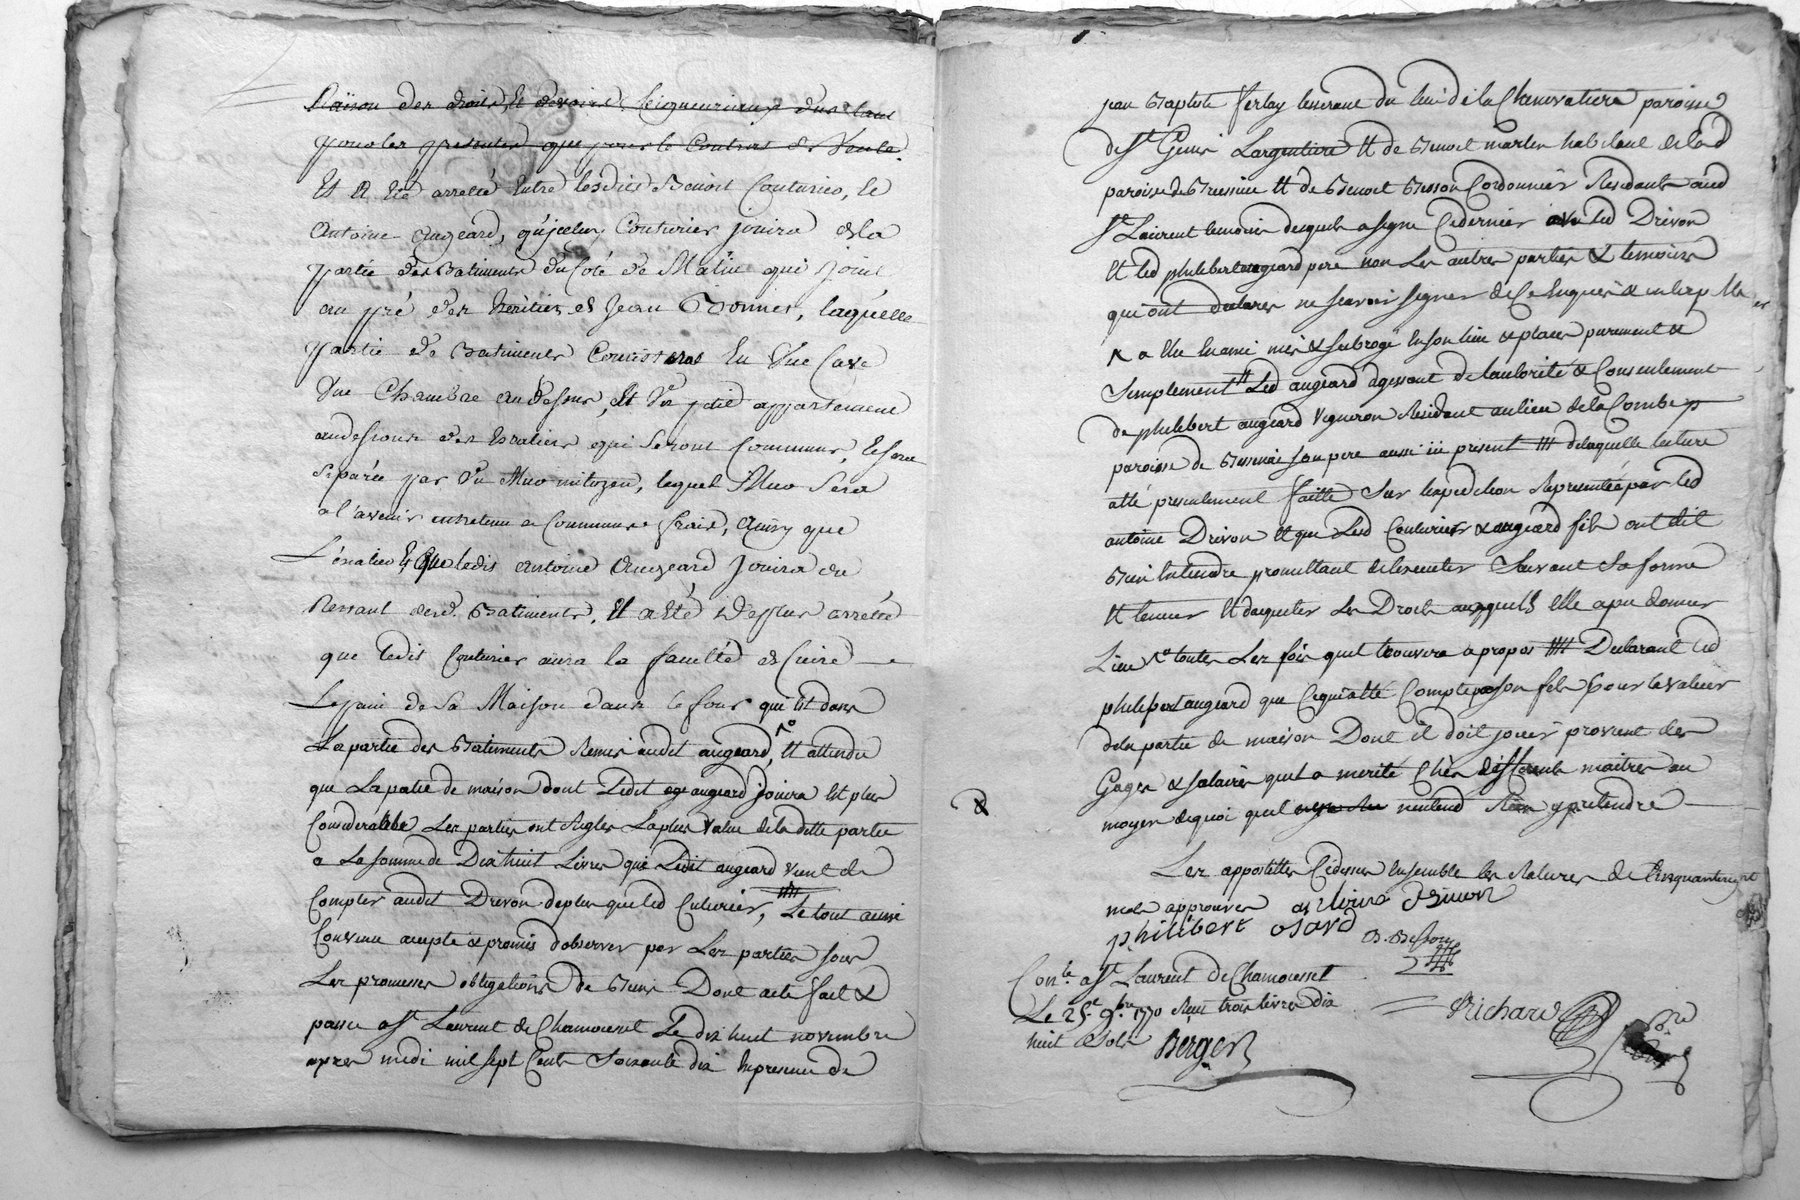 Raison des droits et devoirs seigneuriaux dus tant
pour les presentes que pour le Contrat de Vente.
Et a été arresté Entre lesdits Benoit Couturier, le
Antoine augeard, qu'jceluy Couturier jouira de la
partie des Batiments du Coté de Matin qui joint
au pré des heritiers de jean Bonnet, laquelle
partie de Batiments Consistera En Une Cave
Une Chambre au dessus, Et Un petit appartement
audessous des Escaliers qui Seront Communs, Et Sera
Separée par Un Mur mitoyen, lequel Mur Sera
a l'avenir entretenu a Communs fraix, Ainsy que
l'éscalier Et Que ledit Antoine Augeard jouira du
Restant desd. Batiments, Et a été deplus arresté
que ledit Couturier aura la faculté de Cuire
Le pain de Sa Maison dans le four qui Est dans
La partie des Batiments Remis audit augeard, Et attendu
que La partie de maison dont Ledit augeard jouira Est plus
Considerable Les parties ont Regler La plus Value de la dette partie
a La somme de Dix huit Livres que Ledit augeard vient de
Compter audit Drevon deplus que led Couturier, Le tout ainsi
Convenu accepté & promis d'observer par Les parties sous
Les promesses obligations de Biens Dont acte fait &
passé a St. Laurent de Chamousset Le dix huit novembre
apres midi mil sept Cents Soixante dix En presence de
jean Baptiste Ferlay tisserand du lieu de la Chanovatiere paroisse
de St Genis Largentiere Et de Benoit martin habitant de lad
paroisse de Brussieu Et de Benoit Besson Cordonnier Residant aud
St Laurent temoins desquels a signé Ce dernier avec led Drevon
Et led philibert augeard pere non Les autres parties & temoins
qui ont declarer ne scavoir signer de Ce Enquis &
a Elle mis & subrogé En son lieu & place purement &
Simplement Led augeard agissant de lautorité & Consentement
de philibert augeard Vigneron Residant au lieu de la Combe
paroisse de Bessenai son pere aussi ici present delaquelle lecture
a été presentement faitte Sur lexpedition Representée par led
antoine Drevon Et que Lesd Couturier & augeard fils ont dit
Bien Entendre promettant de lexecuter Suivant Sa forme
Et teneur Et dacquitter Les Droits auxquels elle a pu donner
Lieu toutes Les fois quil trouvera a propos Declarant led
philibert augeard que Ce qui a été Compté par son fils pour la valeur
dela partie de maison Dont il doit jouir provient des
Gages & salaires quil a merité Chés differents maitres au
moyen dequoi quil nentend Rien y pretendre
Les appostilles Cidessus Ensemble les Ratures de Cinquantesept
mots approuvés antoine Drivon
philibert osard
B. Besson
Conlé a St Laurent de Chamousset
Le 25e 9bre 1770 Reçu trois livres dix
huit Sols Berger
Richard